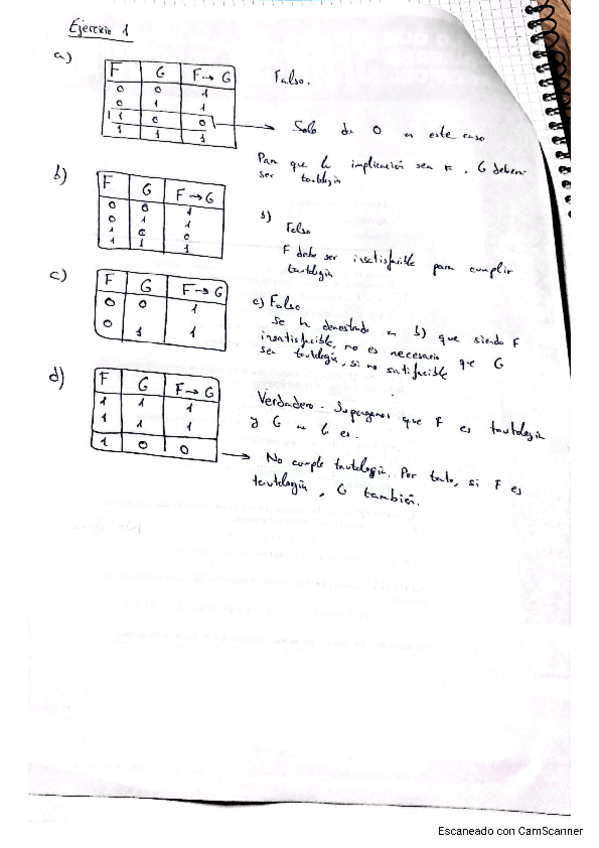 Ejercicio 1
a)
F G F→G
0 0 1
0 1 1
1 0 0
1 1 1
Falso.
Solo da 0 en este caso
Para que la implicación sea F, G deben
ser tautologia
b)
F G F→G
0 0 1
0 1 1
1 0 0
1 1 1
b)
Falso
F debe ser insatisfacible para cumplir
tautologia
c)
F G F→G
0 0 1
0 1 1
c) Falso
Se ha demostrado en b) que siendo F
insatisfacible, no es necesario que G
sea tautologia, si no satisfacible
d)
F G F→G
1 1 1
1 1 1
1 0 0
Verdadero. Supongamos que F es tautologia
y G no lo es.
No cumple tautologia. Por tanto, si F es
tautologia, G también.
Escaneado con CamScanner